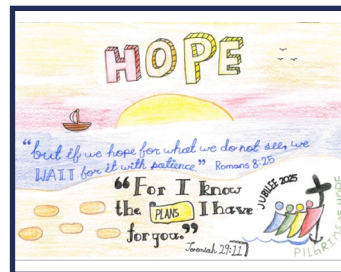 HOPE
"but if we hope for what we do not see, we
WAIT for it with patience" Romans 8:25
"For I know
the PLANS I have
for you."
Jeremiah 29:11
JUBILEE 2025
PILGRIMS OF HOPE